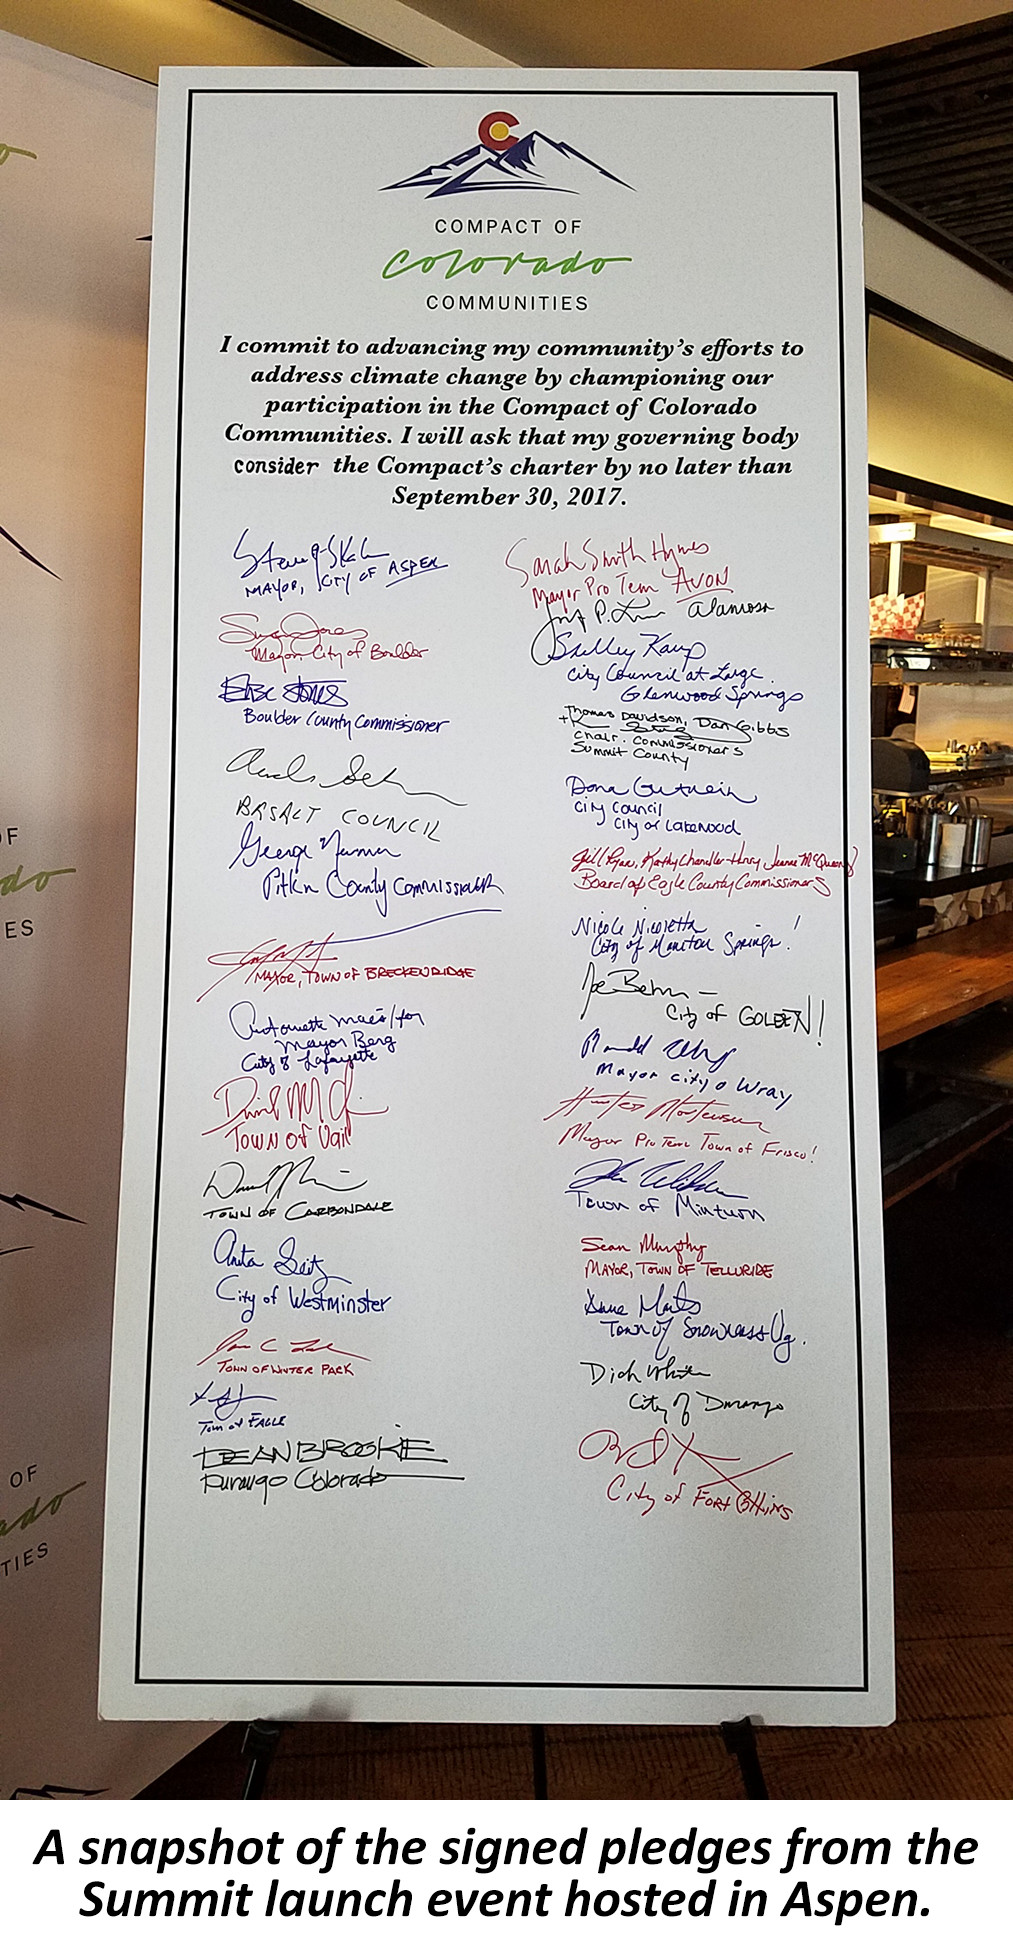 COMPACT OF
Colorado
COMMUNITIES
I commit to advancing my community's efforts to
address climate change by championing our
participation in the Compact of Colorado
Communities. I will ask that my governing body
consider the Compact's charter by no later than
September 30, 2017.
MAYOR, CITY OF ASPEN
Mayor City of Boulder
Boulder County Commissioner
BASALT COUNCIL
George Newman
Pitkin County Commissioner
MAYOR, TOWN OF BRECKENRIDGE
Antoinette Maes/for
Mayor Berg
City of Lafayette
TOWN OF Vail
TOWN OF CARBONDALE
Anita Seitz
City of Westminster
TOWN OF WINTER PARK
Town of EAGLE
DEAN BROOKIE
Durango Colorado
Sarah Smith Hymes
Mayor Pro Tem AVON
Alamosa
Shelley Kaup
City Council at Large
Glenwood Springs
Thomas Davidson, Dan Gibbs
Chair. Commissioners
Summit County
Dana Gutwein
City Council
City of Lakewood
Jill Ryan, Kathy Chandler-Henry, Jeanne McQueeney
Board of Eagle County Commissioners
Nicole Nicoletta
City of Manitou Springs!
Joe Behm –
City of GOLDEN!
Mayor City o Wray
Hunter Mortensen
Mayor Pro Tem Town of Frisco!
Town of Minturn
Sean Murphy
MAYOR, TOWN OF TELLURIDE
Town of Snowmass Vg.
Dick White
City of Durango
City of Fort Collins
OF
do
ES
OF
ado
TIES
A snapshot of the signed pledges from the
Summit launch event hosted in Aspen.